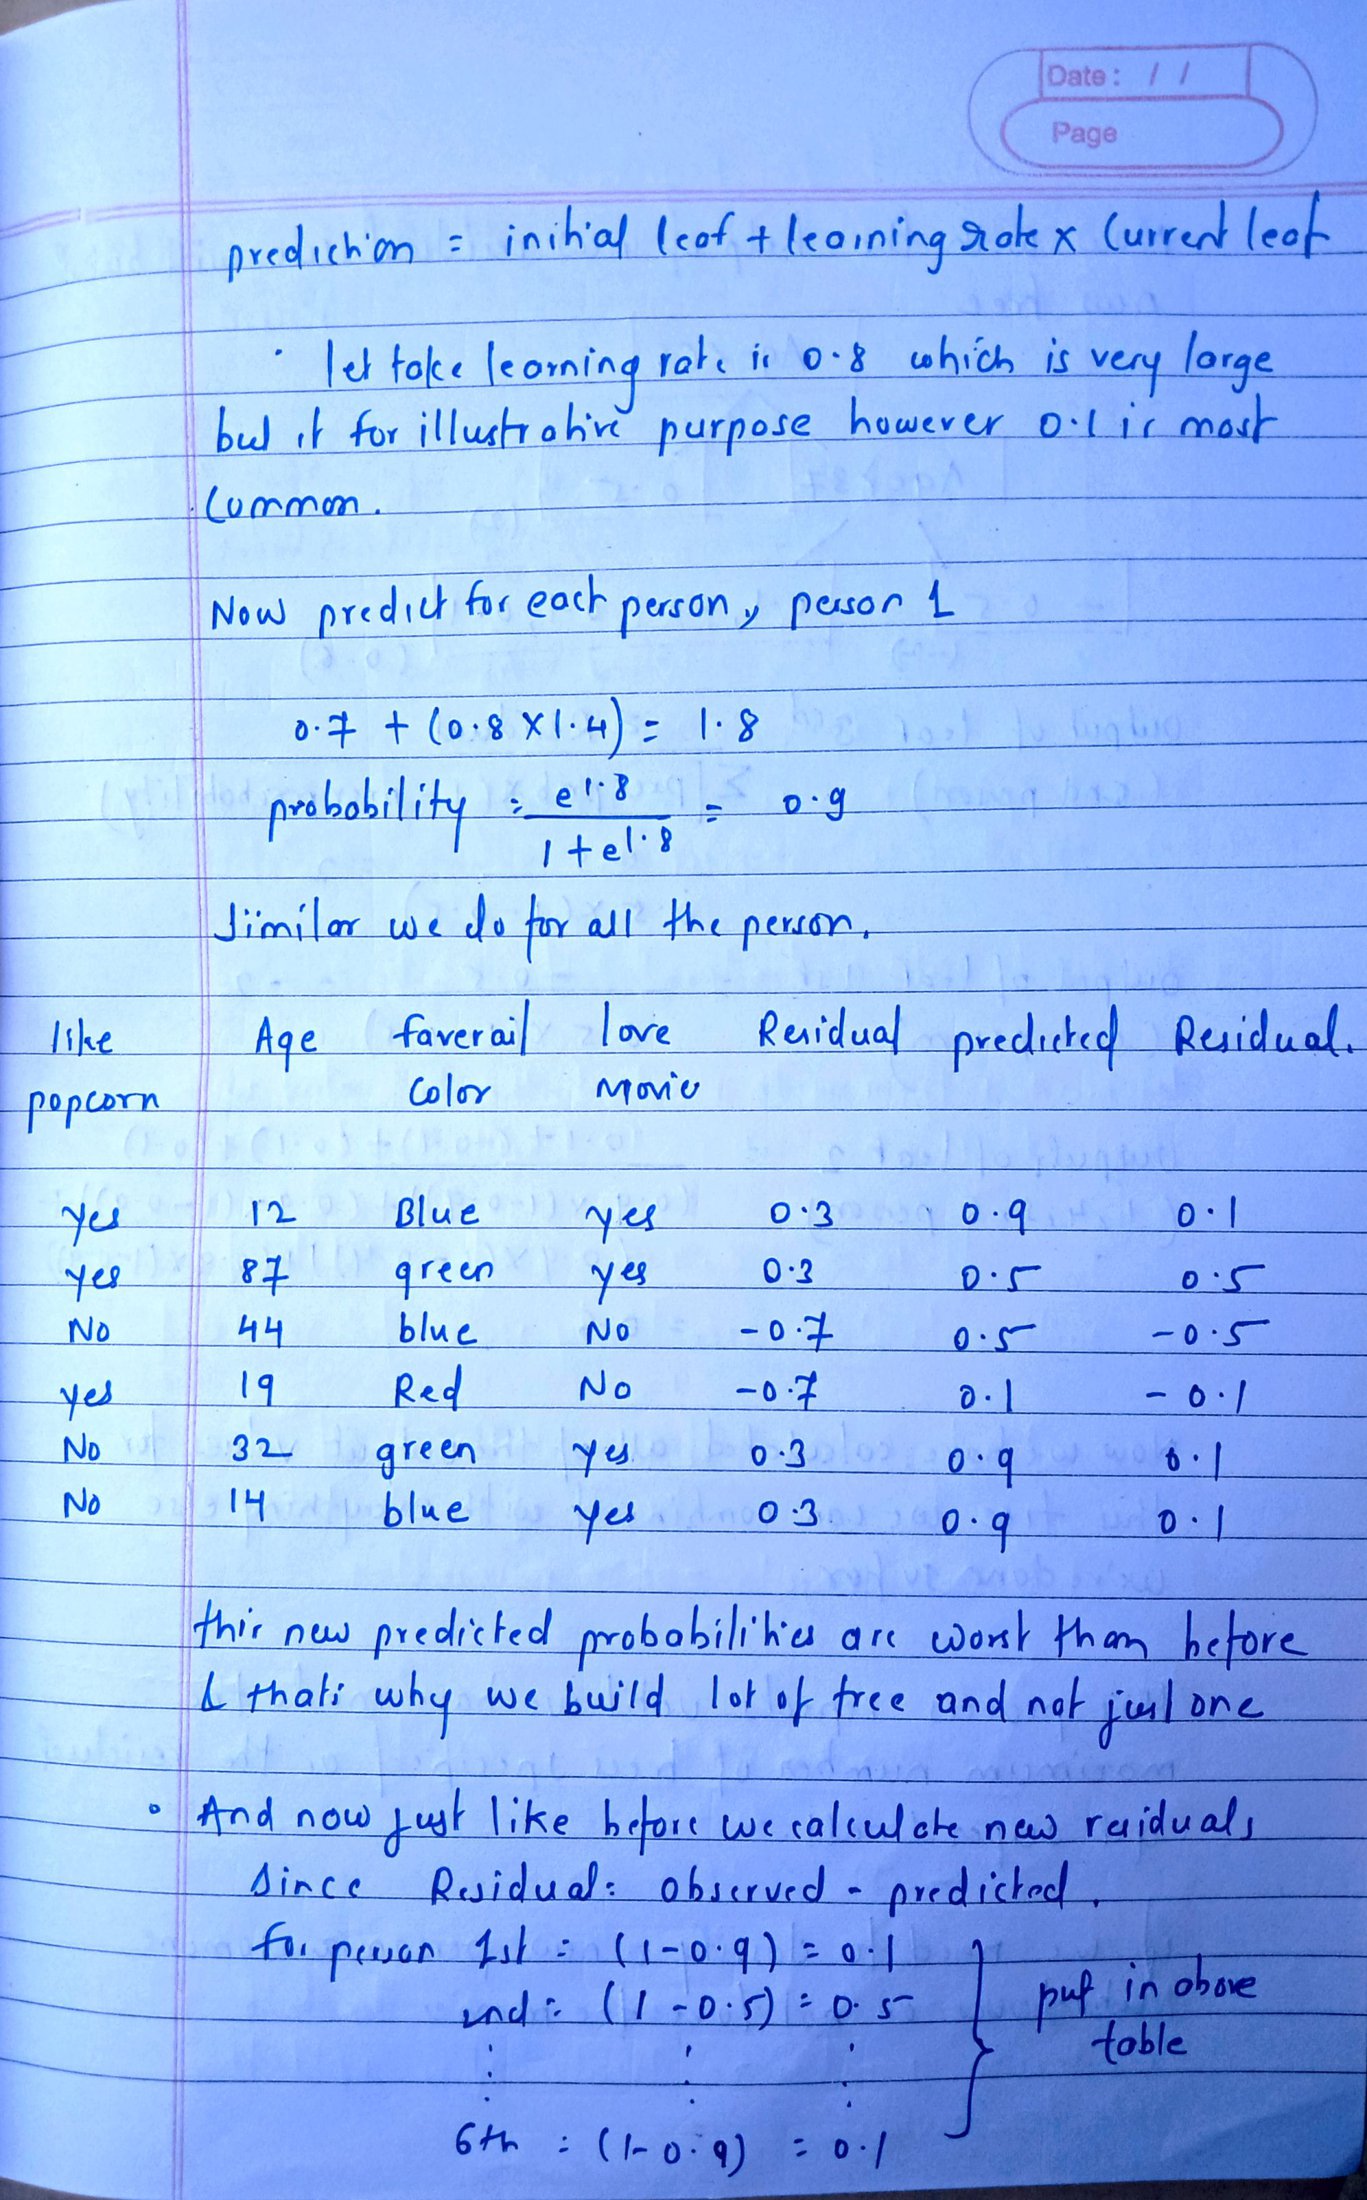 Date: / /
Page
prediction = initial leaf + learning rate x Current leaf
· let take learning rate is 0.8 which is very large
but it for illustrative purpose however 0.1 is most
common.
Now predict for each person, person 1
0.7 + (0.8 x 1.4) = 1.8
probability = e^1.8 / 1 + e^1.8 = 0.9
Similar we do for all the person.
like popcorn Age faverail color love movie Residual predicted Residual.
yes 12 Blue yes 0.3 0.9 0.1
yes 87 green yes 0.3 0.5 0.5
No 44 blue No -0.7 0.5 -0.5
yes 19 Red No -0.7 0.1 -0.1
No 32 green yes 0.3 0.9 0.1
No 14 blue yes 0.3 0.9 0.1
this new predicted probabilities are worst than before
& thats why we build lot of tree and not just one
• And now just like before we calculate new residuals
since Residual = observed - predicted.
for person 1st = (1-0.9) = 0.1
2nd = (1-0.5) = 0.5
: : :
6th = (1-0.9) = 0.1
} put in above
table